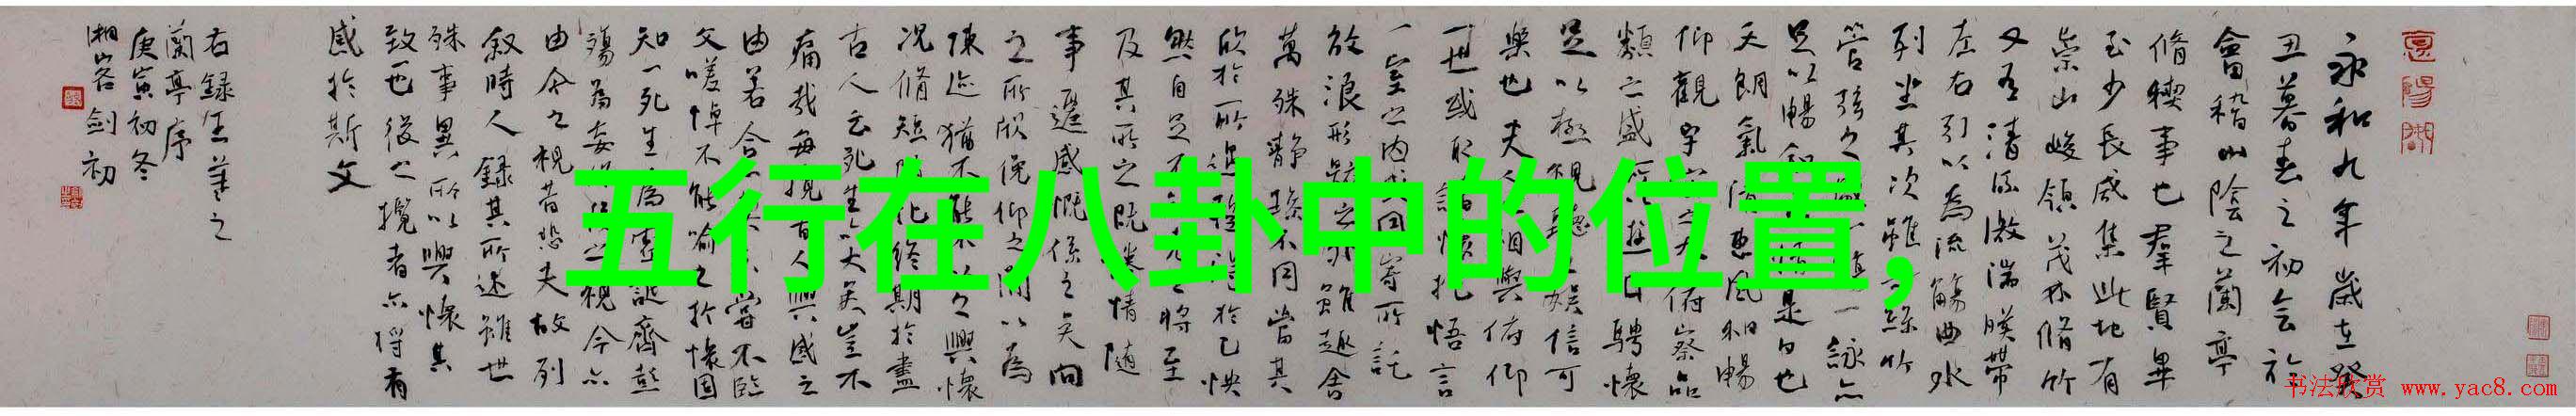 永和九年歲在癸
丑暮春之初會於
會稽山陰之蘭亭
脩稧事也羣賢畢
至少長咸集此地有
崇山峻領茂林脩竹
又有清流激湍暎帶
左右引以為流觴曲水
列坐其次雖無絲竹
管弦之盛一觴一詠亦
足以暢敘幽情是日也
天朗氣清惠風和暢
仰觀宇宙之大俯察品
類之盛所以遊目騁懷
足以極視聽之娛信可
樂也夫人之相與俯仰
一世或取諸懷抱悟言
一室之內或因寄所託
放浪形骸之外雖趣舍
萬殊靜躁不同當其
欣於所遇暫得於己快
然自足不知老之將至
及其所之既惓情隨
事遷感慨係之矣向
之所欣俛仰之間以為
陳迹猶不能不以之興懷
況脩短隨化終期於盡
古人云死生亦大矣豈不
痛哉每攬昔人興感之
由若合一契未嘗不臨
文嗟悼不能喻之於懷固
知一死生為虛誕齊彭
殤為妄作後之視今亦
由今之視昔悲夫故列
敘時人錄其所述雖世
殊事異所以興懷其
致一也後之攬者亦將有
感於斯文
右錄王羲之
蘭亭序
庚寅初冬
湘客劍初
五行在八卦中的位置,
书法欣赏 www.yac8.com